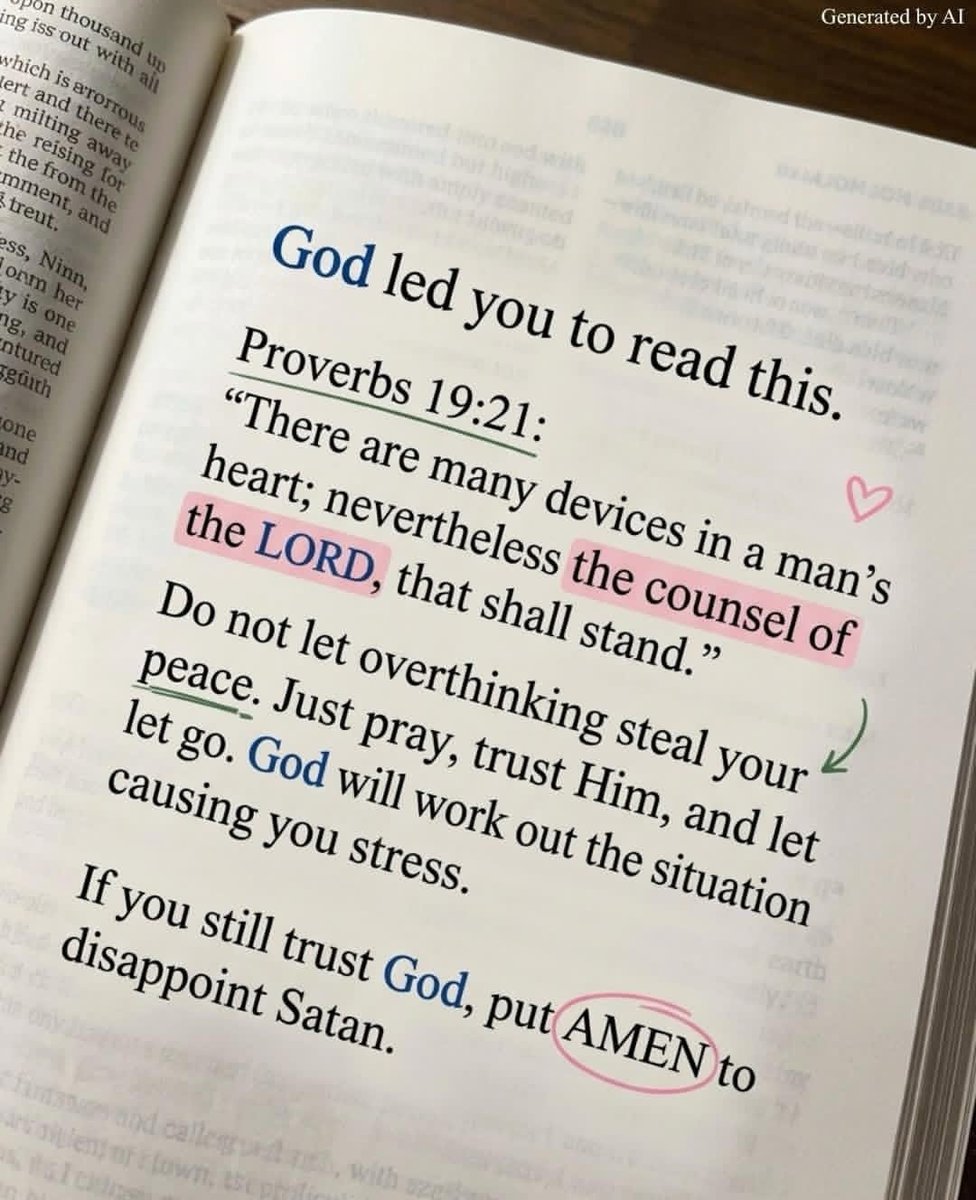 Generated by AI
pon thousand up
ing iss out with all
which is arorrous
lert and there te
milting away
the reising for
the from the
mment, and
treut.
ess, Ninn,
her
ty is one
ng, and
ntured
one
and
God led you to read this.
Proverbs 19:21:
“There are many devices in a man’s
heart; nevertheless the counsel of
the LORD, that shall stand.”
Do not let overthinking steal your
peace. Just pray, trust Him, and let
let go. God will work out the situation
causing you stress.
If you still trust God, put AMEN to
disappoint Satan.